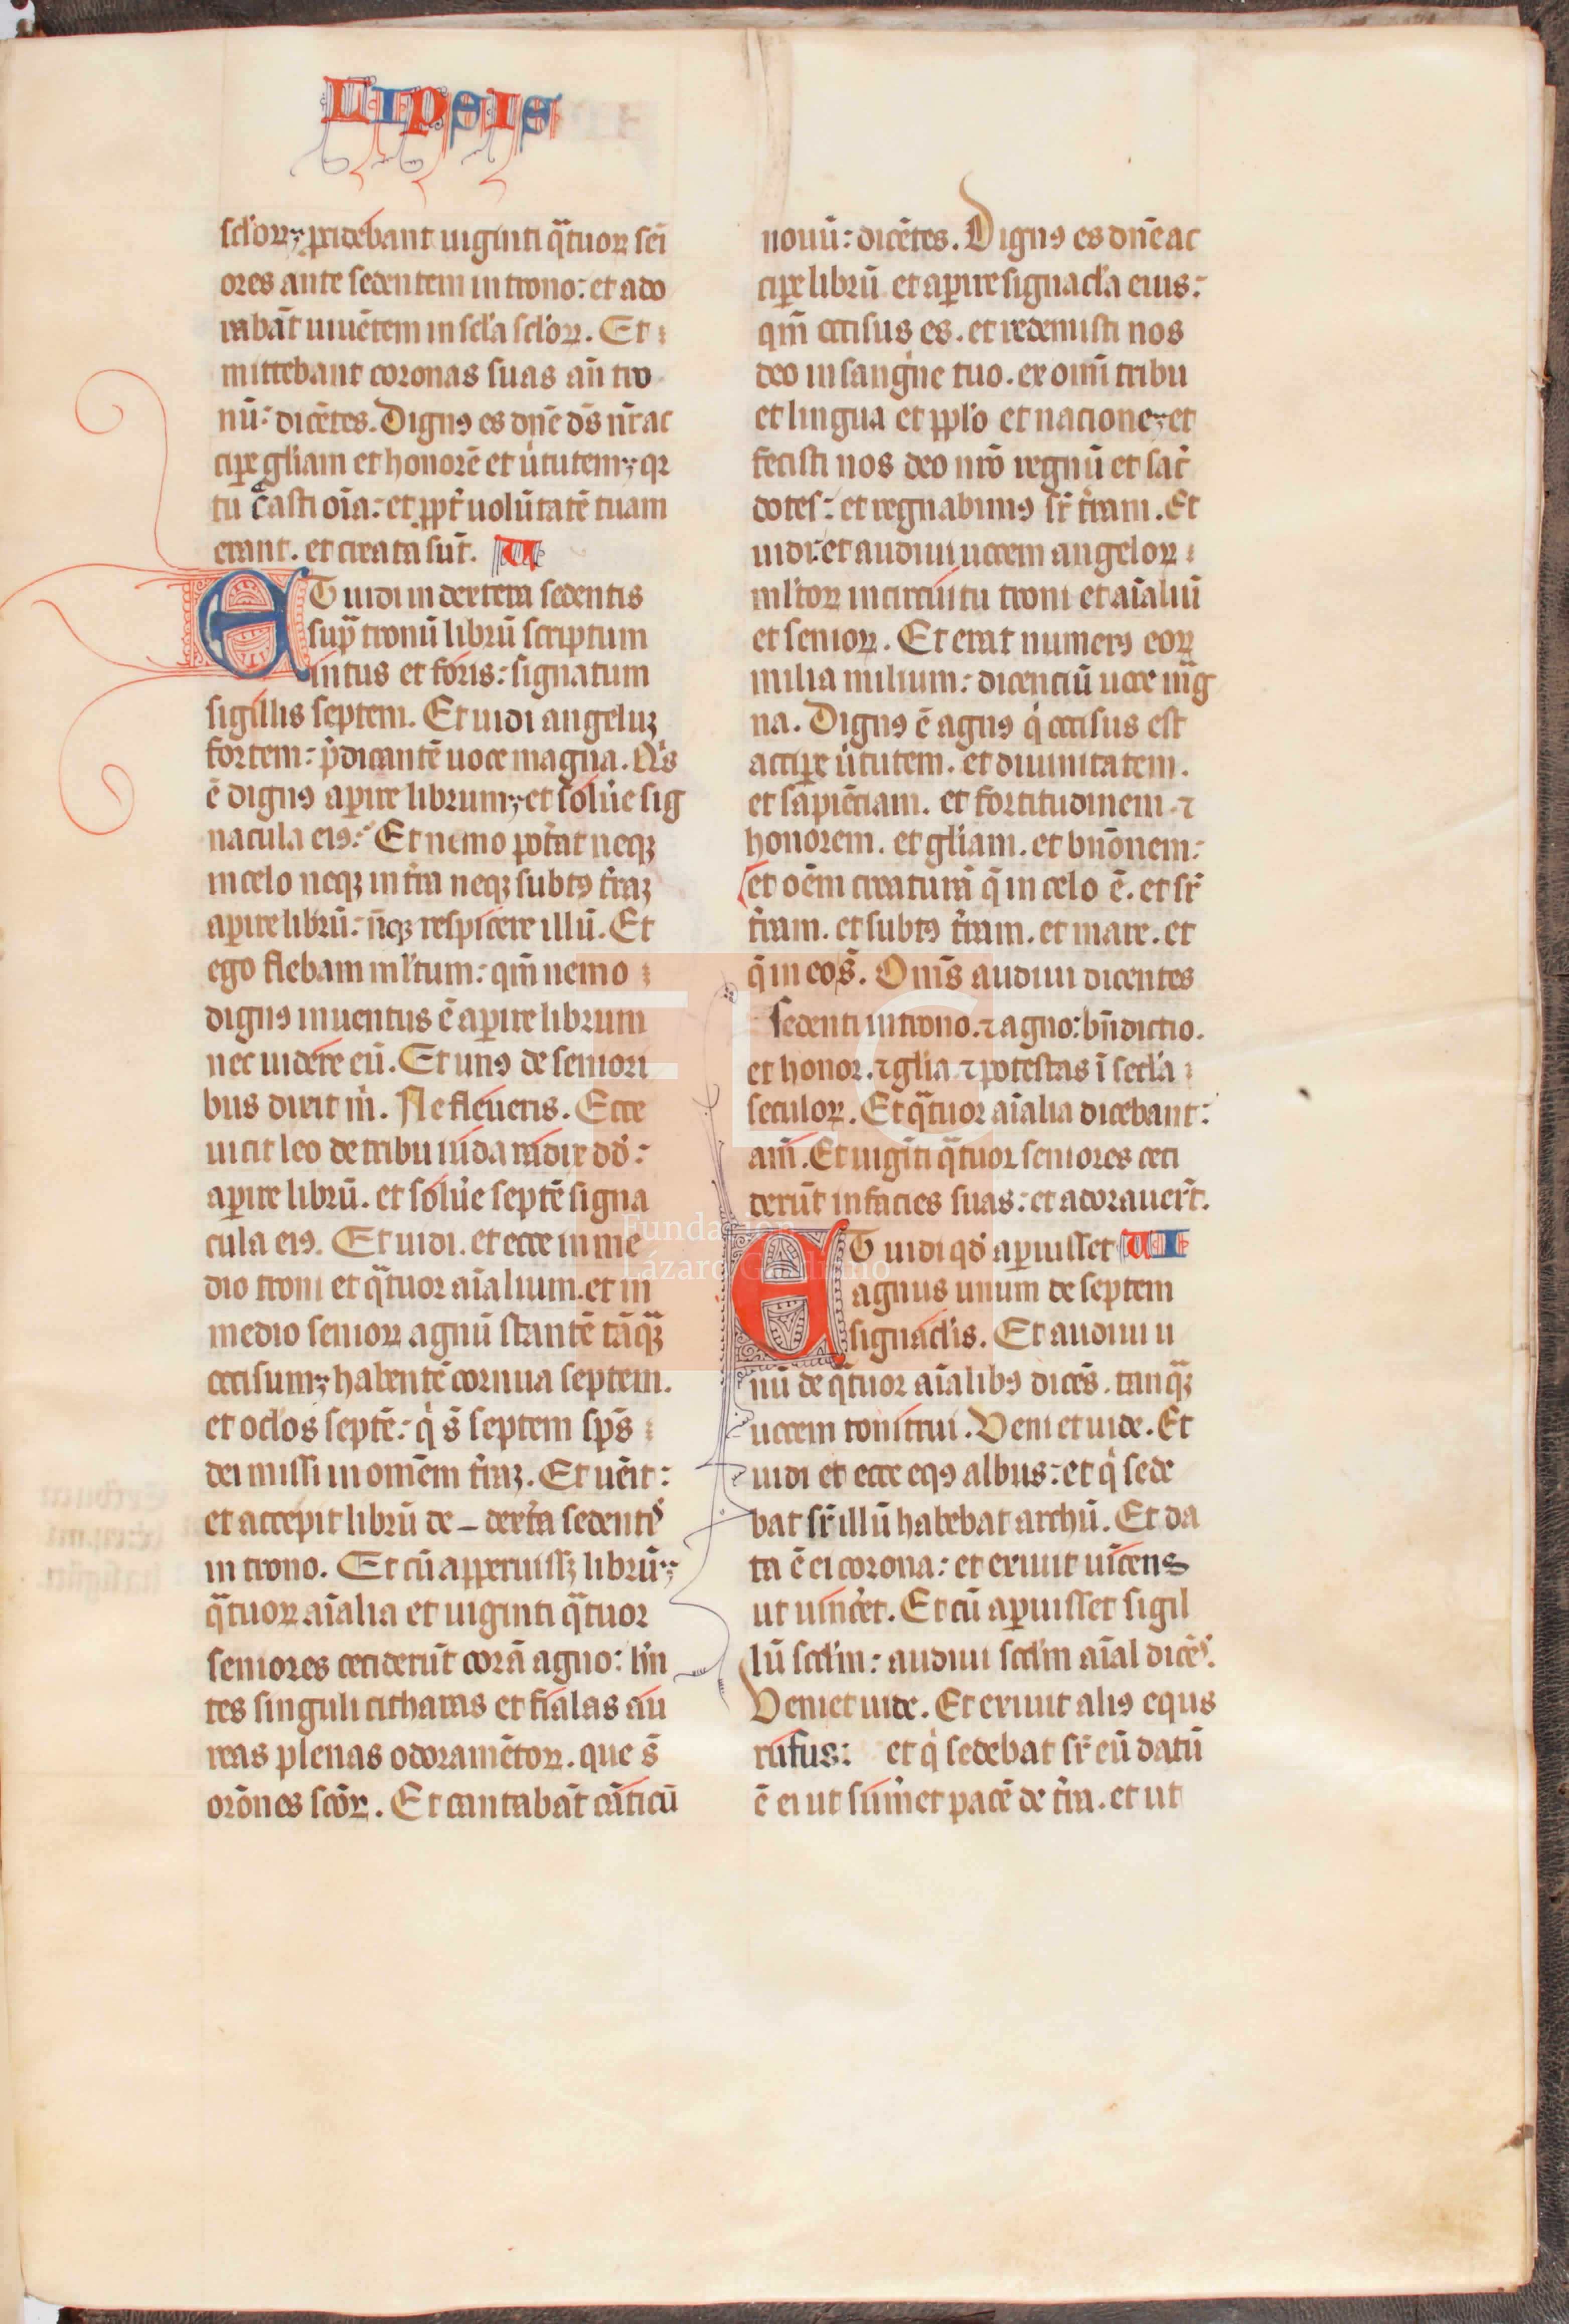 LIPSIS
scl̄oꝝ; ꝓcidebant uiginti qͣtuor sēi
ores ante sedentem in trono: et ado
rabāt uiuētem in scl̄a scl̄oꝝ. Et
mittebant coronas suas an̄ tro
nū: dicētes. Dignꝰ es dn̄e ds̄ nr̄ ac
ciꝑe gl̄iam et honorē et u̇tutem; qꝛ
tu c̄asti oīa: et ꝓpt̄ uolūtatē tuam
erant. et creata sūt. V
ET uidi in dextera sedentis
supͣ tronū librū scriptum
intus et foris: signatum
sigillis septem. Et uidi angeluꝫ
fortem: p̄dicantē uoce magna. Qͥs
ē dignꝰ aꝑire librum; et soluͤe sig
nacula eiꝰ: Et nemo pot̄at neqꝫ
in celo neqꝫ in t̄ra neqꝫ subtꝰ t̄raꝫ
aꝑire librū: n̄qꝫ respicere illū. Et
ego flebam ml̄tum: qm̄ nemo
dignꝰ inuentus ē aꝑire librum
nec uidere eū. Et unꝰ de seniori
bus dixit m̄. Ne fleueris. Ecce
uicit leo de tribu iuda radix dd̄:
aꝑire librū. et soluͤe septē signa
cula eiꝰ. Et uidi. et ecce in me
dio troni et qͣtuor aīalium. et in
medio senioꝝ agnū stantē tāqͣꝫ
occisum; habentē cornua septem.
et oclōs septē: qͥ s̄ septem sp̄s
dei missi in omēm t̄raꝫ. Et uēit:
et accepit librū de – dext̄a sedentͥ
in trono. Et cū apperuissꝫ librū;
qͣtuor aīalia et uiginti qͣtuor
seniores ceciderūt corā agno: hn̄
tes singuli citharas et fialas au
reas plenas odoramētoꝝ. que s̄
orōnes scōꝝ. Et cantabāt cāticū
nouū: dicētes. Dignꝰ es dn̄e ac
ciꝑe librū et aꝑire signacl̄a eius:
qm̄ occisus es. et redemisti nos
deo in sangͥne tuo. ex omī tribu
et lingua et ppl̄o et nacione; et
fecisti nos deo nr̄o regnū et sac̄
dotes: et regnabimꝰ sr̄ t̄ram. Et
uidi: et audiui uocem angeloꝝ
ml̄toꝝ in circuitu troni et aīaliū
et senioꝝ. Et erat numerꝰ eoꝝ
milia milium: dicenciū uoce mͣg
na. Dignꝰ ē agnꝰ qͥ occisus est
acciꝑe u̇tutem. et diuinitatem.
et sapiēciam. et fortitudinem ⁊
honorem. et gl̄iam. et bn̄ōnem:
et oēm creaturā q̄ in celo ē. et sr̄
t̄ram. et subtꝰ t̄ram. et mare. et
q̄ in eo s̄. Om̄s audiui dicentes
sedenti in trono. ⁊ agno: bn̄dictio.
et honor. ⁊ gl̄ia ⁊ potestas ī secl̄a
seculoꝝ. Et qͣtuor aīalia dicebant:
am̄. Et uigīti qͣtuor seniores ceci
derūt in facies suas: et adorauer̄t.
ET uidi qd̄ aꝑuisset VI
agnus unum de septem
signacl̄is. Et audiui u
nū de qͣtuor aīalibꝰ dicēs. tanqͣꝫ
uocem tonitrui. Veni et uide. Et
uidi et ecce eqꝰ albus: et qͥ sede
bat sr̄ illū habebat archū. Et da
ta ē ei corona: et exiuit uīcens
ut uinc̄et. Et cū aꝑuisset sigil
lū scd̄m: audiui scd̄m aīal dicēs.
Veni et uide. Et exiuit aliꝰ equs
rufus: et qͥ sedebat sr̄ eū datū
ē ei ut sum̄et pacē de t̄ra. et ut
Fundación
Lázaro Galdiano
FLG